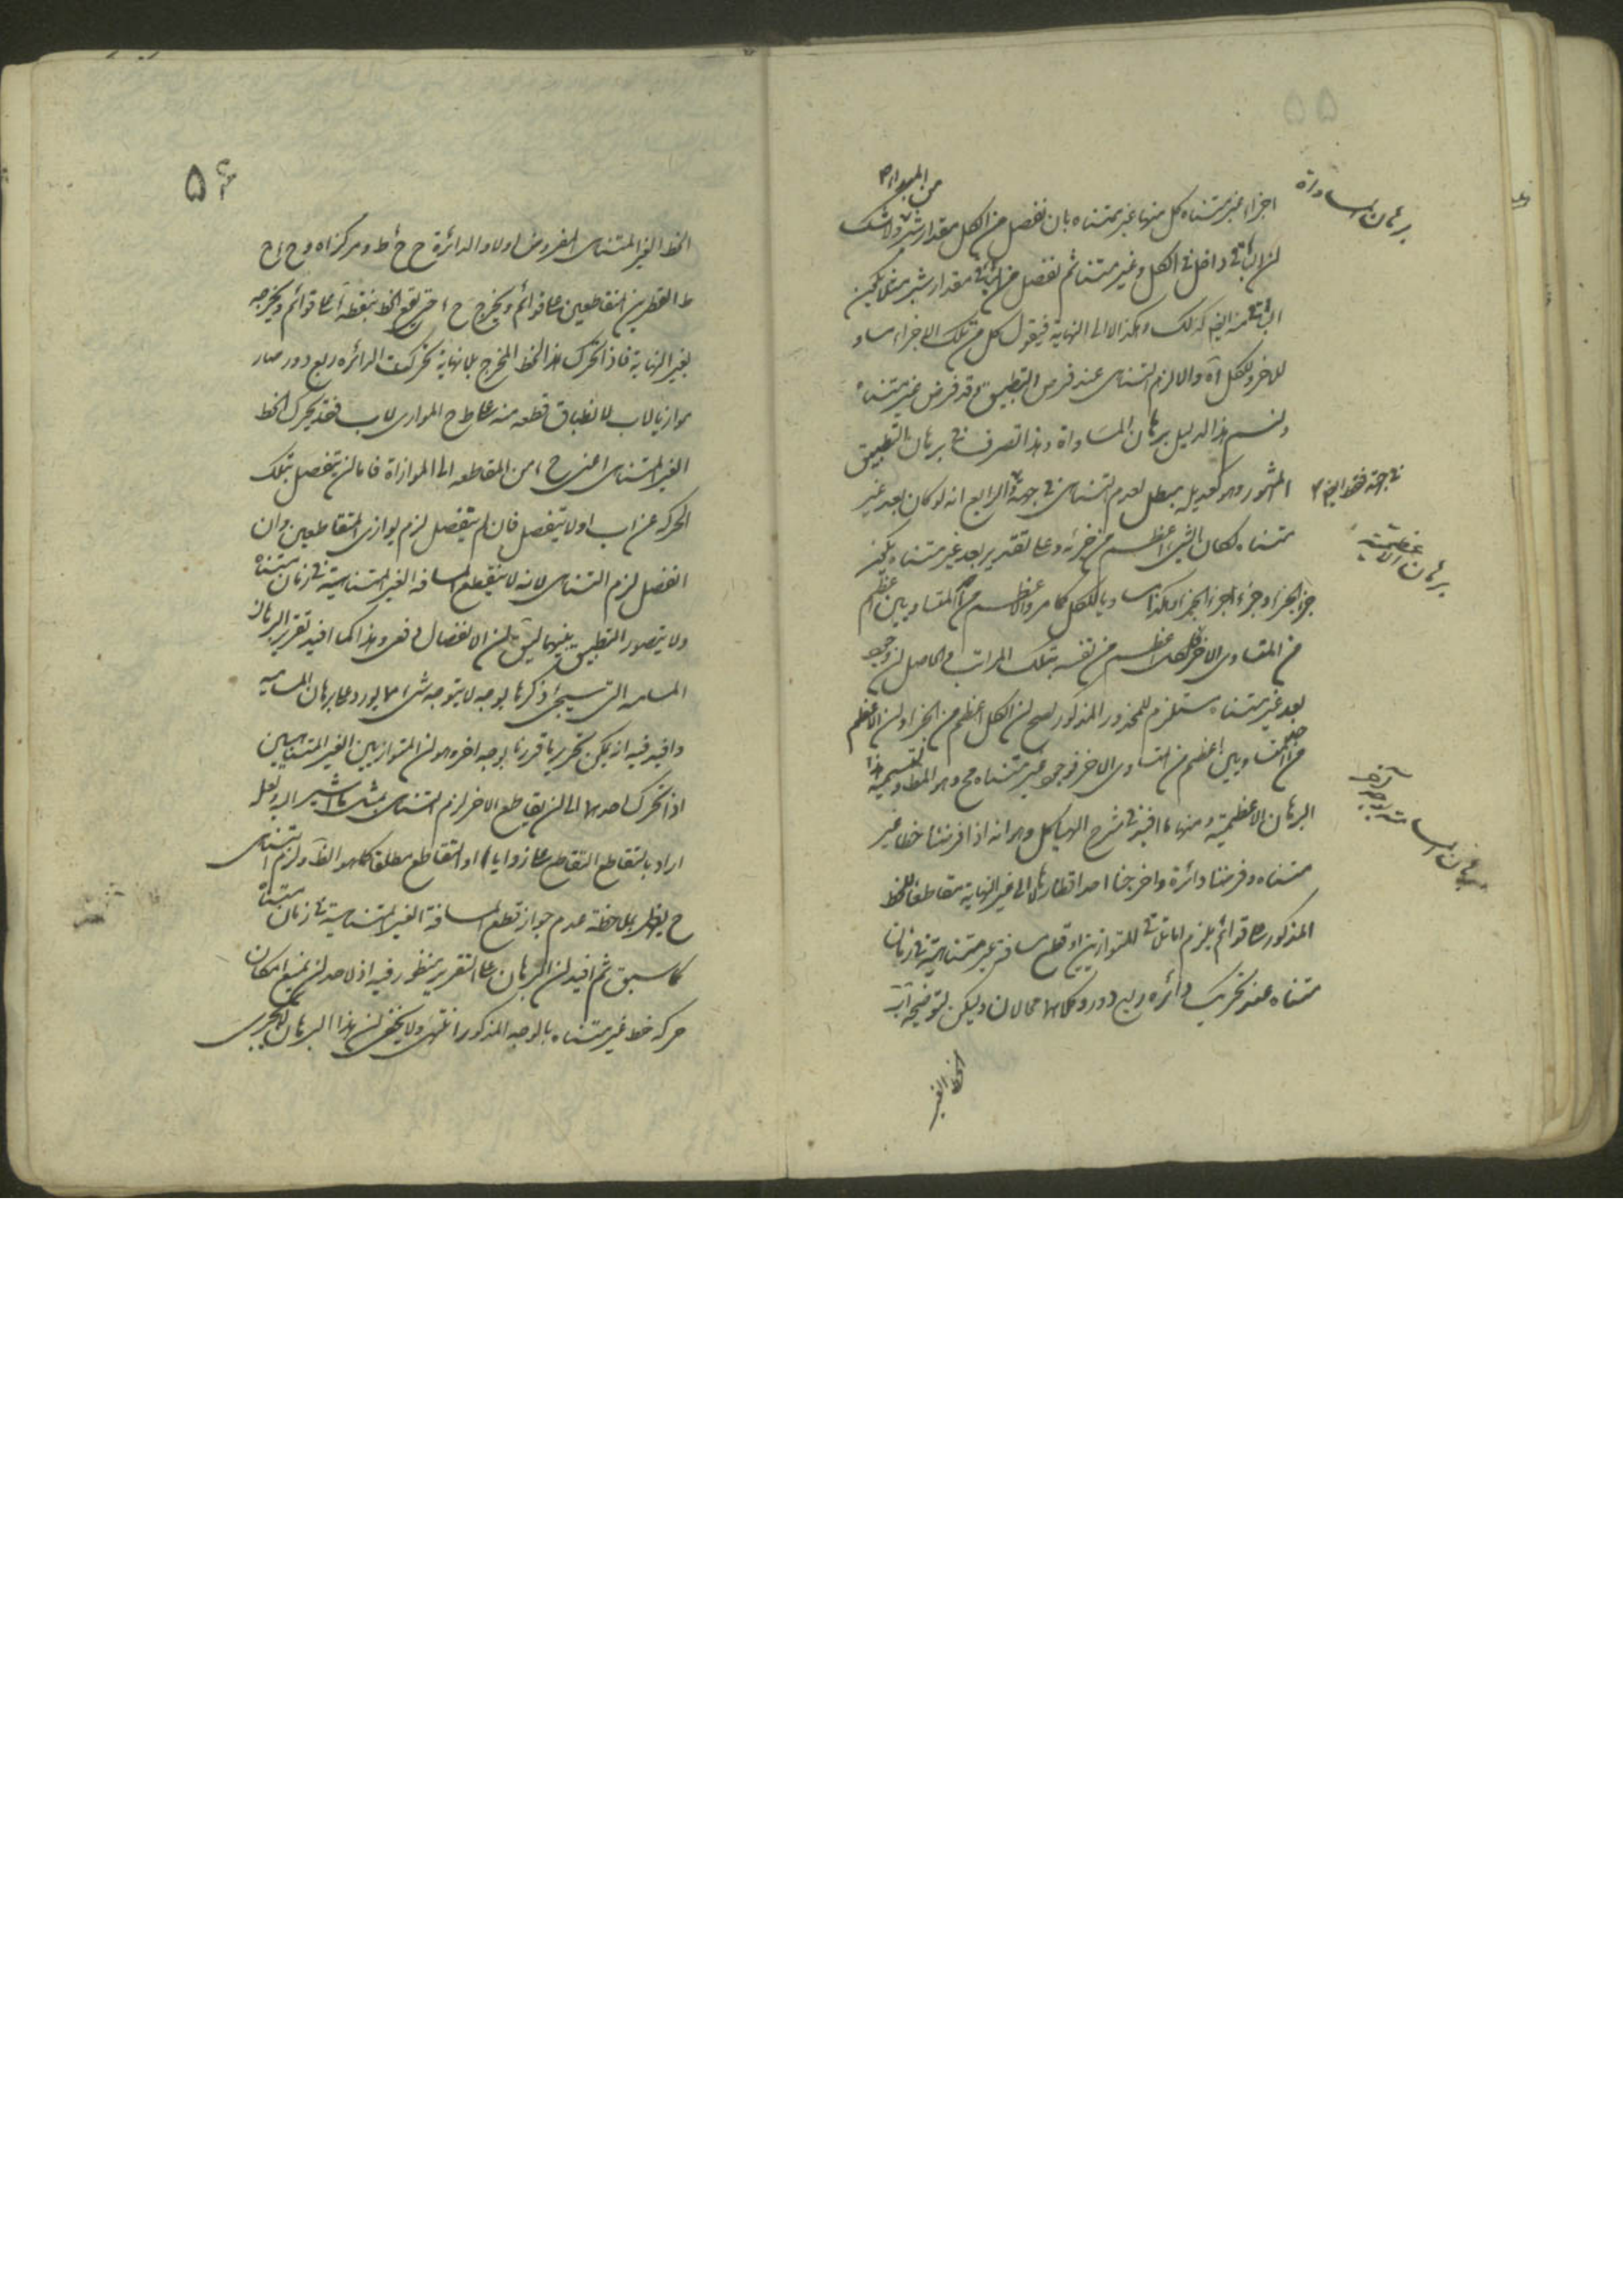 ۵۵
برهان المساواة
اجزاء غير متناه كل منها غير متناه بان نفصل من الكل مقدار شبر ولا شك
لن الباقى داخل فى الكل وغير متناه ثم نفصل من الباقى مقدار شبر مثلا يكون
الباقى منه ايضا كذلك وهكذا لا الى النهاية فيقول كل من تلك الاجزاء مساو
للاخر وللكل والا لزم التناهى عند فرض التطبيق وقد فرض غير متناه
ولنسم هذا الدليل برهان المساواة وهذا تصرف فى برهان التطبيق
المشهور وهو كعديله يبطل لعدم التناهى فى جهة الرابع انه لو كان بعد غير
فى جهة فقط ايضا
متناه لكان الشئ اعظم من جزئه وعلى تقدير بعد غير متناه يكون
برهان الاعظمية
جزء الجزء وجزء جزء الجزء وهكذا مساويا للكل كما مر والاعظم من المتساويين اعظم
من المتساوى الاخر فالكل اعظم من نفسه بتلك المراتب والحاصل لن وجود
بعد غير متناه مستلزم للمحذور المذكور لصح لن الكل اعظم من الجزء ولن الاعظم
من المتساويين اعظم من المساوى الاخر فوجود غير متناه مح وهو المط ولنسميه هذا
البرهان الاعظمية ومنها ما افيد فى شرح الهياكل وهو انه اذا فرضنا خطا غير
برهان المسامتة بوجه آخر
متناه وفرضنا دائرة واخرجنا احد اقطارها الى غير النهاية مقاطعا للخط
المذكور على قوائم يلزم اما تلاقى المتوازيين او قطع مسافة غير متناهية فى زمان
متناه عند تحريك دائره ربع دور وكلاهما محالان وليكن لتوضيحه اب
الخط الغير
۵۶
الخط الغير المتناهى المفروض اولا والدائرة ح ط ومركزاه و ح ا ح
ط القطرين المتقاطعين على قوائم ويخرج ح حتى يقع الخط بنقطة على قوائم ويخرجه
بغير النهاية فاذا تحرك هذا الخط المخرج بلا نهاية تحركت الدائره ربع دور صار
موازيا لاب لانطباق قطعه منه على ط ح الموازى لاب فعند تحرك الخط
الغير المتناهى اعنى ح من المقاطعه الى الموازاة فاما لن ينفصل بتلك
الحركه عن اب اولا ينفصل فان لم ينفصل لزم توازى المتقاطعين وان
انفصل لزم التناهى لانه لا ينقطع المسافه الغير المتناهية فى زمان متناه
ولا يتصور التطبيق بينهما لن الانفصال دفعى وهذا كما افيد تقرير البرهان
المسامته التى سيجئ ذكرها بوجه لا يتوجه شئ مما يورد على برهان المسامته
وافيد فيه انه يمكن تحريرها قررنا بوجه اخر وهو لن المتوازيين الغير المتناهيين
اذا تحرك احدهما الى لن يقاطع الاخر لزم التناهى بمثل ما اشير اليه ولعل
اراد بالتقاطع التقاطع على زوايا او التقاطع مطلقا كما هو الظ ولزم التناهى
ح يظهر بملاحظة عدم جواز قطع المسافة الغير المتناهية فى زمان متناه
كما سبق ثم افيد لن البرهان على التقرير منظور فيه اذ لاحد لن يمنع امكان
حركه خط غير متناه بالوجه المذكور انتهى ولا يخفى لن هذا البرهان لا يجرى